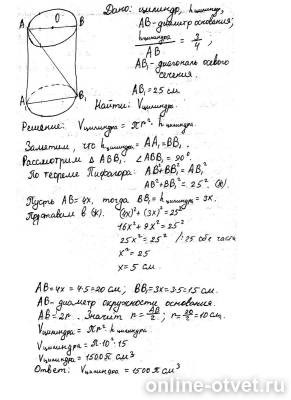 O
A B
A₁ B₁
Дано: цилиндр, hцилиндр,
AB - диаметр основания;
hцилиндра / AB = 3/4;
AB₁ - диагональ осевого
сечения.
AB₁ = 25 см
Найти: Vцилиндра.
Решение: Vцилиндра = πr² · hцилиндра.
Заметим, что hцилиндра = AA₁ = BB₁.
Рассмотрим △ABB₁. ∠ABB₁ = 90°.
По теореме Пифагора: AB² + BB₁² = AB₁²
AB² + BB₁² = 25². (*).
Пусть AB = 4x, тогда BB₁ = hцилиндра = 3x.
Подставим в (*). (4x)² + (3x)² = 25²
16x² + 9x² = 25²
25x² = 25² /:25 обе части
x² = 25
x = 5 см.
AB = 4x = 4·5 = 20 см; BB₁ = 3x = 3·5 = 15 см.
AB - диаметр окружности основания.
AB = 2r. Значит r = AB/2; r = 20/2 = 10 см.
Vцилиндра = πr² · hцилиндра
Vцилиндра = π·10²·15
Vцилиндра = 1500π см³
Ответ: Vцилиндра = 1500π см³
online-otvet.ru